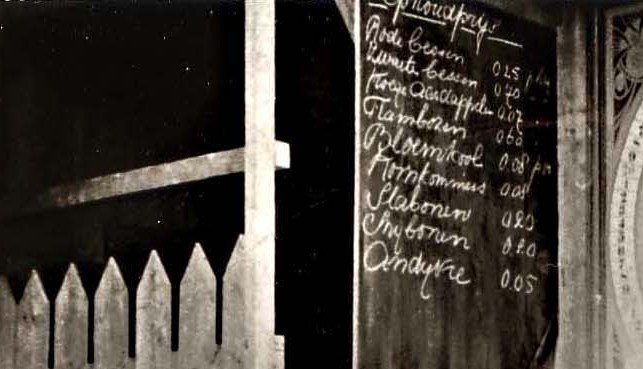 Ophoudprijs
Rode bessen 0.25 p
Zwarte bessen 0.40
Aardappelen 0.07
Framboren 0.60
Bloemkool 0.08 p
Komkommers 0.08
Slabonen 0.20
Snybonen 0.20
Andyvie 0.05